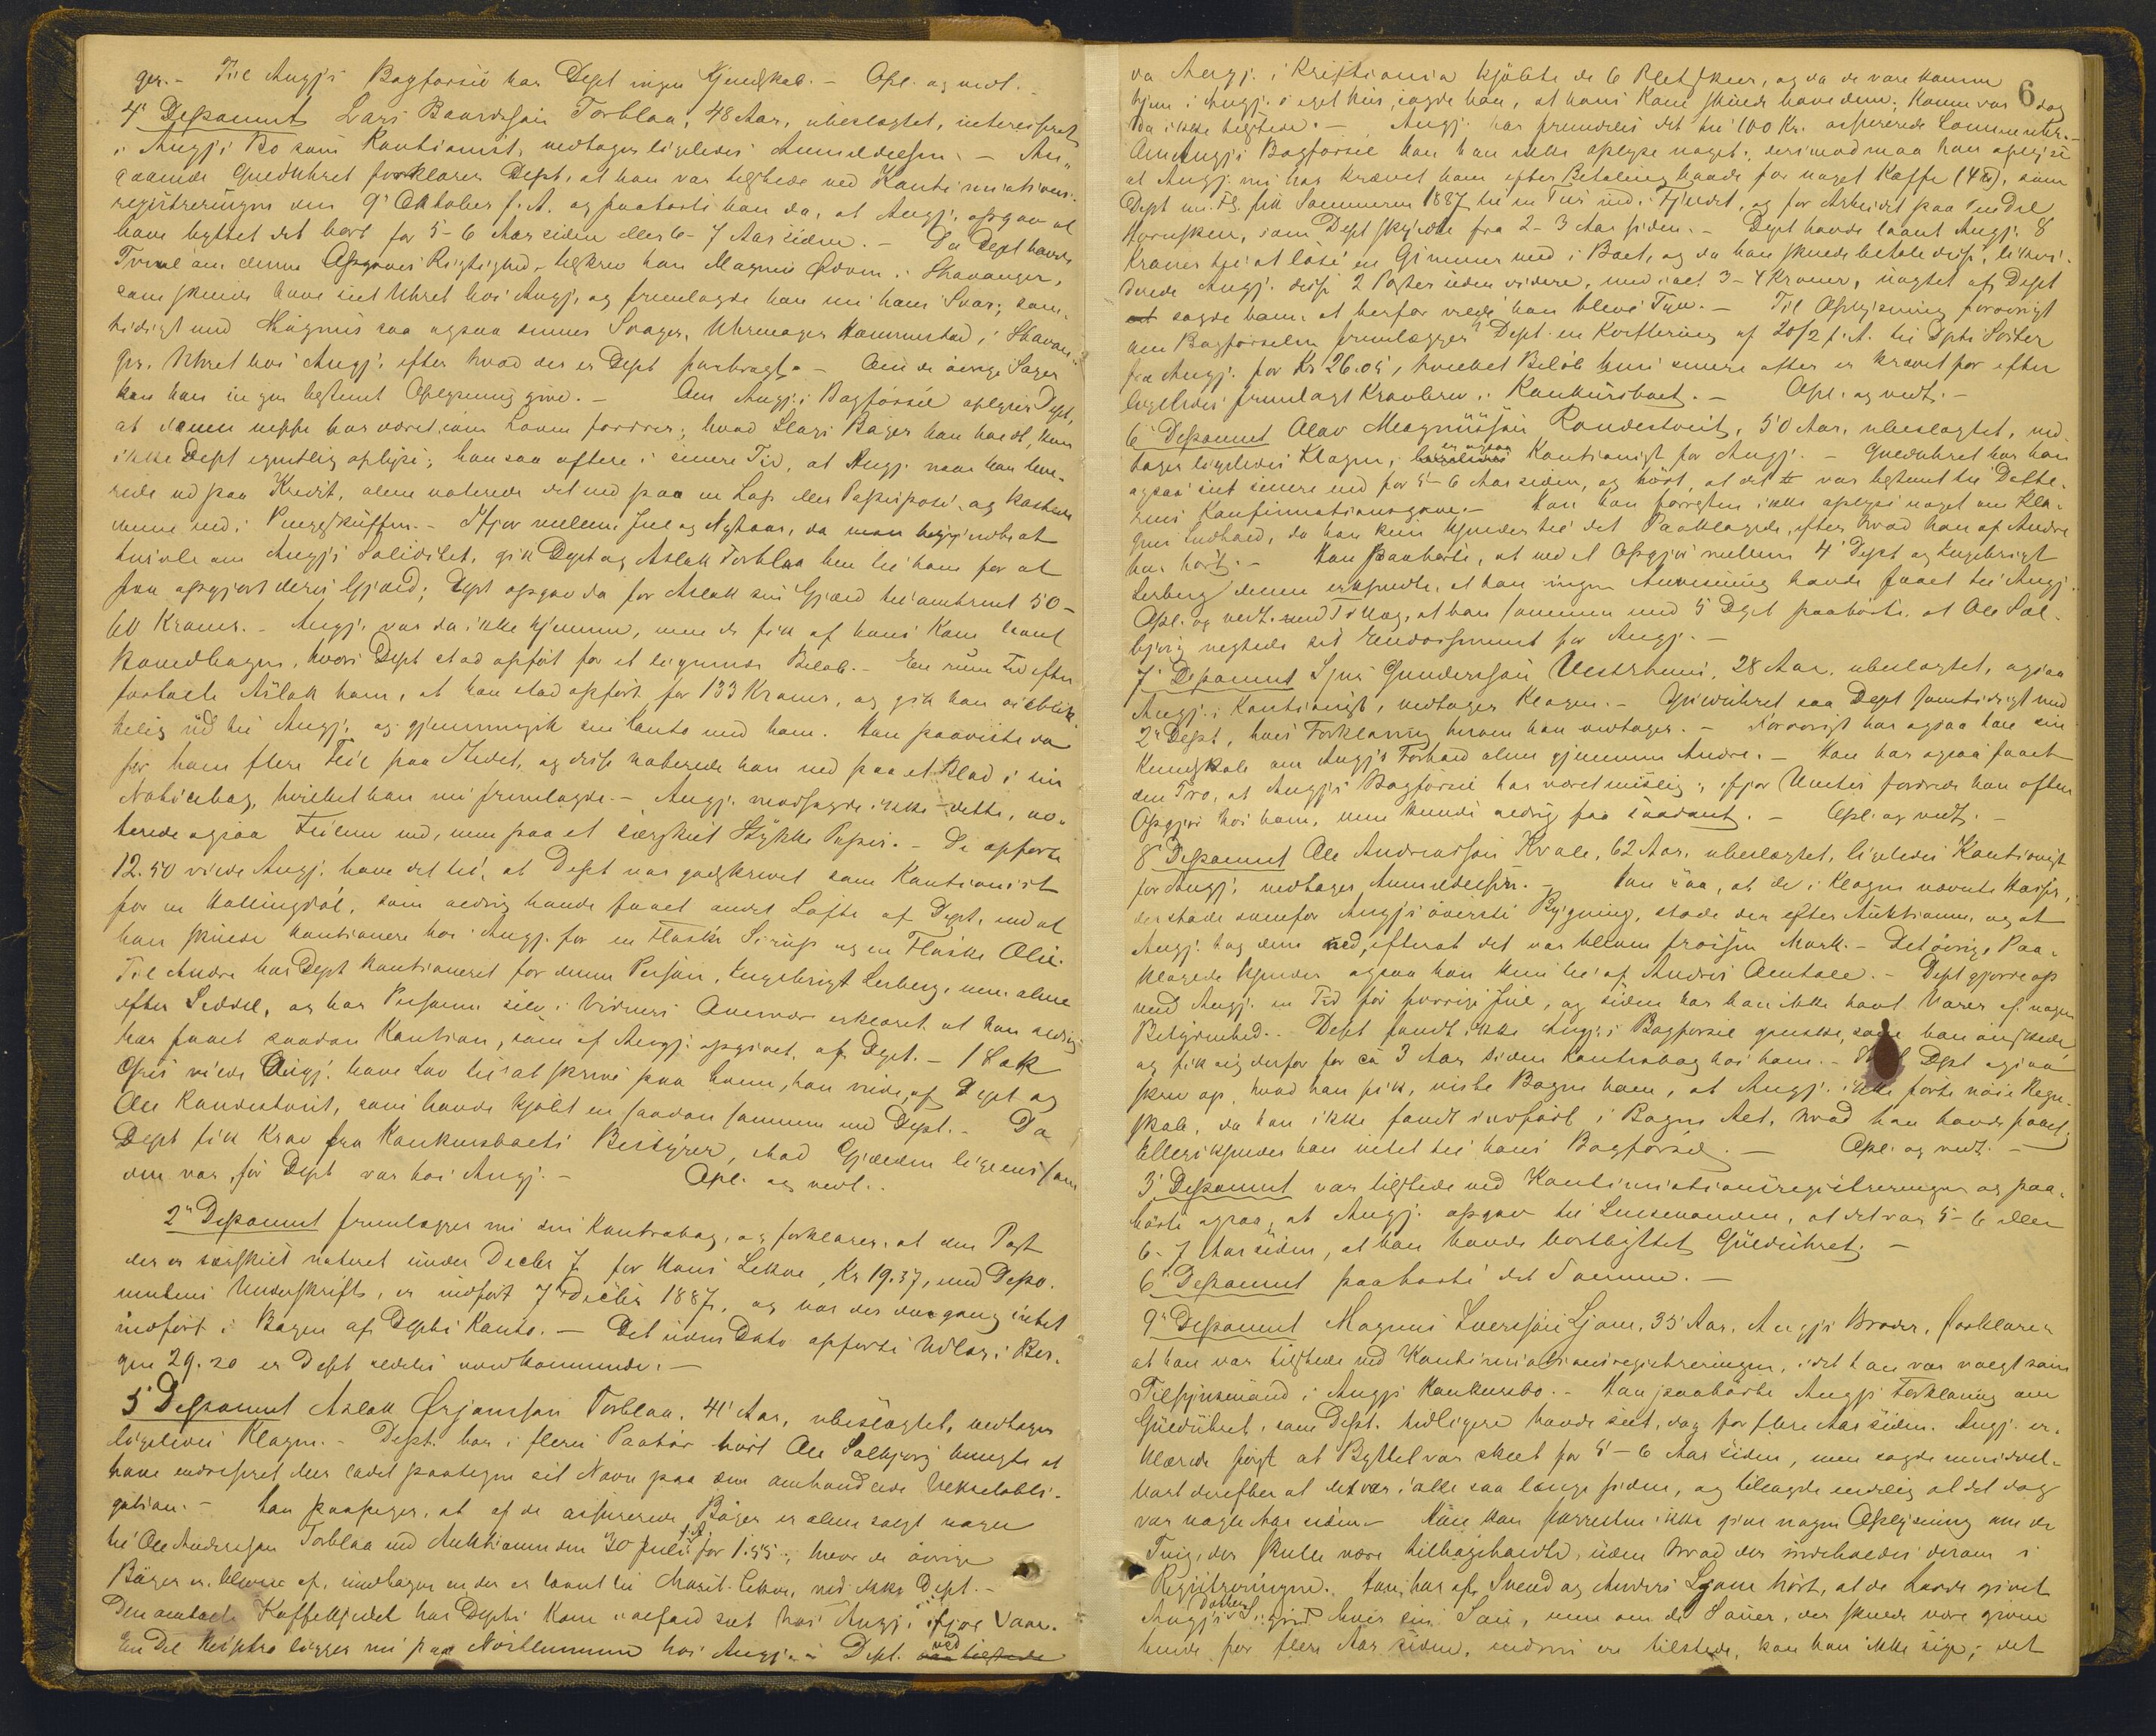 ger. - Til Angj's Bogførsel har Dept ingen Kjendskab. - Opl. og vedt. -
4' Deponent Lars Baardssøn Torblaa, 48 Aar, ubeslægtet, interesseret
i Angj's Bo som Kautionist, vedtager ligeledes Anmeldelsen. - An-
gaaende Gulduhret forklarer Dept, at han var tilstede ved Kontinuations-
registreringen den 9' Oktober f. A. og paahørte han da, at Angj. opgav at
have byttet det bort for 5-6 Aar siden eller 6-7 Aar siden. - Da Dept havde
Tvivl om denne Opgaves Rigtighed, tilskrev han Magnus Odven i Stavanger,
som skulde have seet Uhret hos Angj., og fremlagde han nu hans Svar; sam-
tidigt med Magnus saa ogsaa dennes Svager, Uhrmager Hammerstad, i Stavan-
ger, Uhret hos Angj. efter hvad der er Dept forebragt. - Om de øvrige Sager
kan han ingen bestemt Oplysning give. - Om Angj.s Bogførsel oplyser Dept,
at denne neppe har været, som Loven fordrer; hvad Slags Bøger han havde, kan
ikke Dept egentlig oplyse; han saa oftere i senere Tid, at Angj. naar han leve-
rede ud paa Kredit, alene noterede det ned paa en Lap eller Papirpose, og kastede
denne ned i Pengeskuffen. - Ifjor mellem Jul og Nytaar, da man begyndte at
tvivle om Angj's Soliditet, gik Dept og Aslak Torblaa hen til ham for at
faa opgjort deres Gjæld; Dept opgav da for Aslak sin Gjæld til omtrent 50-
60 Kroner. - Angj. var da ikke hjemme, men de fik af hans Kone laant
Hovedbogen, hvori Dept stod opført for et lignende Beløb. - En rum Tid efter
fortalte Aslak ham, at han stod opført for 133 Kroner, og gik han øieblik-
kelig ud til Angj. og gjennemgik sin Conto med ham. Han paaviste da
for ham flere Feil paa Stedet, og disse noterede han ned paa et Blad i sin
Noticebog, hvilket han nu fremlagde. - Angj. modsagde ikke dette, no-
terede ogsaa Feilene ned, men paa et særskilt Stykke Papir. - De opførte
12.50 vilde Angj. have det til, at Dept var godskrevet som Kautionist
for en Hallingdøl, som aldrig havde faaet andet Løfte af Dept, end at
han skulde kautionere hos Angj. for en Flaske Sirup og en Flaske Olie.
Til Andre har Dept kautioneret for denne Person, Engebrigt Lerberg, men alene
efter Seddel, og har Personen selv i Vidners Overvær erklæret at han aldrig
har faaet saadan Kaution, som af Angj. opgivet, af Dept. - 1 Sæk
Gris vilde Angj. have Lov til at skrive paa ham, han vidde, af Dept og
Ole Rondestveit, som havde kjøbt en saadan sammen med Dept. - Da
Dept fik Krav fra Konkursboets Bestyrer, stod Gjælden ligesom
den var, før Dept var hos Angj. - Opl. og vedt. -
2' Deponent fremlægger nu sin Kontrabog, og forklarer, at den Post
der er særskilt noteret under Decbr 7 for Hans Lekve, Kr 19.37, med Depo-
nentens Underskrift, er indført 7' Decbr 1887, og var der dengang intet
indført i Bogen af Depts Konto. - Det uden Dato opførte Udlæg i Ber-
gen 29.20 er Dept aldeles uvedkommende. -
5' Deponent Aslak Ørjansson Torblaa, 41 Aar, ubeslægtet, vedtager
ligeledes Klagen. - Dept. har i fleres Paahør hørt Ole Solbjørg benegte at
have endosseret eller ladet paategne sit Navn paa den omhandlede Vexelobli-
gation. - Han paapeger, at af de assurerede Bøger er alene solgt nogen
til Ole Andersson Torblaa ved Auktionen den 30 Juli f. A. for 1.55; hvor de øvrige
Bøger er bleven af, undtagen en der er laant til Marit Lekve, ved ikke Dept. -
Den omtalte Kaffekjedel har Depts Kone i alfald seet hos Angj. ifjor Vaar.
En Del Huspbro ligger nu paa Nøstlemmen hos Angj. - Dept. ved var tilstede
6
da Angj. i Kristiania kjøbte de 6 Pletskeer, og da de vare komne
hjem i Angj.s eget Hus, sagde han, at hans Kone skulde have dem. Konen var dog
da ikke tilstede. - Angj. har fremdeles det til 100 Kr. assurerede Lommeuhr. -
Om Angj's Bogførsel kan han ikke oplyse noget; derimod maa han oplyse
at Angj. nu har krævet ham efter Betaling baade for noget Kaffe (4 ℔), som
Dept m. Fl. fik Sommeren 1887 til en Tur ind i Fjeldet, og for Arbeidet paa endel
Hornskeer, som Dept skjænte fra 2-3 Aar siden. - Dept havde laant Angj. 8
Kroner til at løse en Gimmer med i Boet, og da han skulde betale disse, likvi-
derede Angj. disse 2 Poster uden videre, med ialt 3-4 Kroner, uagtet af Dept
sagde ham, at herfor vilde han blive Tyv. - Til Oplysning forøvrigt
om Bogførselen fremlægger Dept en Kvittering af 20/2 f. A. til Depts Søster
fra Angj. for Kr 26.05, hvilket Beløb hun senere atter er krævet for efter
ligeledes fremlagt Kravbrev i Konkursboet. - Opl. og vedt. -
6' Deponent Olav Magnussøn Rondestveit, 50 Aar, ubeslægtet, ved-
tager ligeledes Klagen, er ogsaa Kautionist for Angj. - Gulduhret har han
ogsaa seet senere end for 5-6 Aar siden, og hørt, at det var bestemt til Datte-
rens Konfirmationsgave. - Kan han forresten ikke oplyse noget om Kla-
gens Indhold, da han kun kjender til det Paaklagede, efter hvad han af Andre
har hørt. - Han paahørte, at ved et Opgjør mellem 4' Dept og Engebrigt
Lerberg denne erkjendte, at han ingen Anvisning havde faaet til Angj.
Opl. og vedt. med Tillæg, at han sammen med 5 Dept paahørte, at Ole Sol-
bjørg negtede sit Endossement for Angj. -
7' Deponent Sjur Gunderssøn Vestrheim, 28 Aar, ubeslægtet, ogsaa
Angj.s Kautionist, vedtager Klagen. - Gulduhret saa Dept samtidigt med
2' Dept, hvis Forklaring herom han vedtager. - Forøvrigt har ogsaa han sin
Kundskab om Angj's Forhold alene gjennem Andre. - Han har ogsaa faaet
den Tro, at Angj's Bogførsel har været mislig; ifjor Vinter fordrede han ofte
Opgjør hos ham, men kunde aldrig faa saadant. - Opl. og vedt. -
8' Deponent Ole Andreassøn Kvale, 62 Aar, ubeslægtet, ligeledes Kautionist
for Angj., vedtager Anmeldelsen. - Han saa, at de i Klagen nævnte Hæsjer,
der stode ovenfor Angj's øverste Bygning, stode der efter Auktionen, og at
Angj. tog dem ned, efterat det var bleven frossen Mark. - Det øvrige Paa-
klagede kjender ogsaa han kun til af Andres Omtale. - Dept gjorde op
med Angj. en Tid før forrige Jul, og siden har han ikke havt Varer af nogen
Betydenhed. - Dept fandt ikke Angj.s Bogførsel ganske, som han ønskede,
og fik sig derfor for ca 3 Aar siden Kontrabog hos ham. - Dept ogsaa
skrev op, hvad han fik, viste Bogen ham, at Angj. ikke førte nøie Regn-
skab, da han ikke fandt indført i Bogen Alt, hvad han havde faaet;
Ellers kjender han intet til hans Bogførsel. - Opl. og vedt. -
3' Deponent var tilstede ved Kontinuationsregistreringen og paa-
hørte ogsaa, at Angj. opgav til Lensmanden, at det var 5-6 eller
6-7 Aar siden, at han havde bortbyttet Gulduhret. -
6' Deponent paahørte det Samme. -
9' Deponent Magnus Iverssøn Ljone, 35 Aar, Angj's Broder, forklarer
at han var tilstede ved Kontinuationsregistreringen, idet han var valgt som
Tilsynsmand i Angj's Konkursbo. - Han paahørte Angj's Forklaring om
Gulduhret, som Dept. tidligere havde seet, dog for flere Aar siden. Angj. er-
klærede først at Byttet var skeet for 5-6 Aar siden, men sagde umiddel-
bart derefter at det var ikke saa længe siden, og tilsagde endelig at det dog
var nogle Aar siden. - Han kan forresten ikke give nogen Oplysning om de
Ting, der skulle være tilbageholdte, uden hvad der indholdes derom i
Registreringen. Han har af Svend og Anders Ljone hørt, at de havde givet
Angj's Datter Sigrid hver sin Sau, men om de Sauer, der skulde være given
hende for flere Aar siden, endnu ere tilstede, kan han ikke sige; det